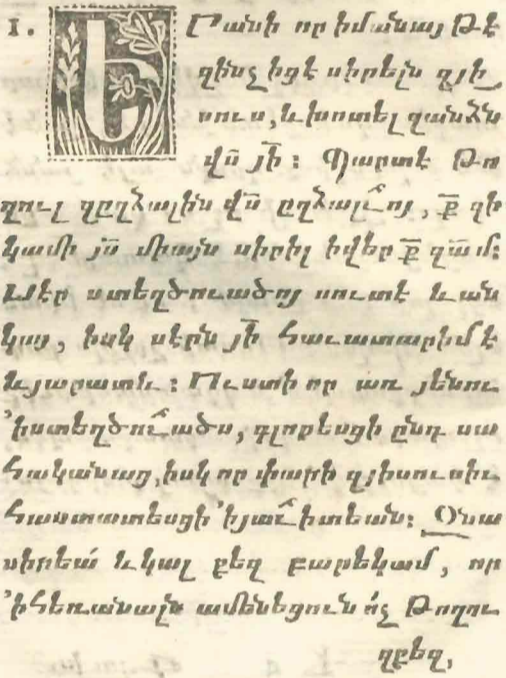 1. Երանի որ իմանայ թէ
զինչ իցէ սիրելն զյի
սուս, և խոտել զանձն
վ̅ն̅ յ̅ի̅ : Պարտէ թո
ղուլ զըղձալին վ̅ն̅ ըղձալւոյ, ք̅ զի
կամի յ̅ս̅ միայն սիրիլ իվեր ք̅ զա̅մ̅:
Սէր ստեղծուածոյ սուտ է և ան
կայ, իսկ սէրն յ̅ի̅ հաւատարիմ է
և յարատև : Ուստի որ առ յենու
՚ի ստեղծուածս, գլորեսցի ընդ սա
հականաց, իսկ որ փարի զյիսուսիւ
հաստատեսցի ՚ի յաւիտեան: Զնա
սիրեա՛ և կալ քեզ բարեկամ, որ
՚ի հեռանալն ամենեցուն ո՛չ թողու
զքեզ,